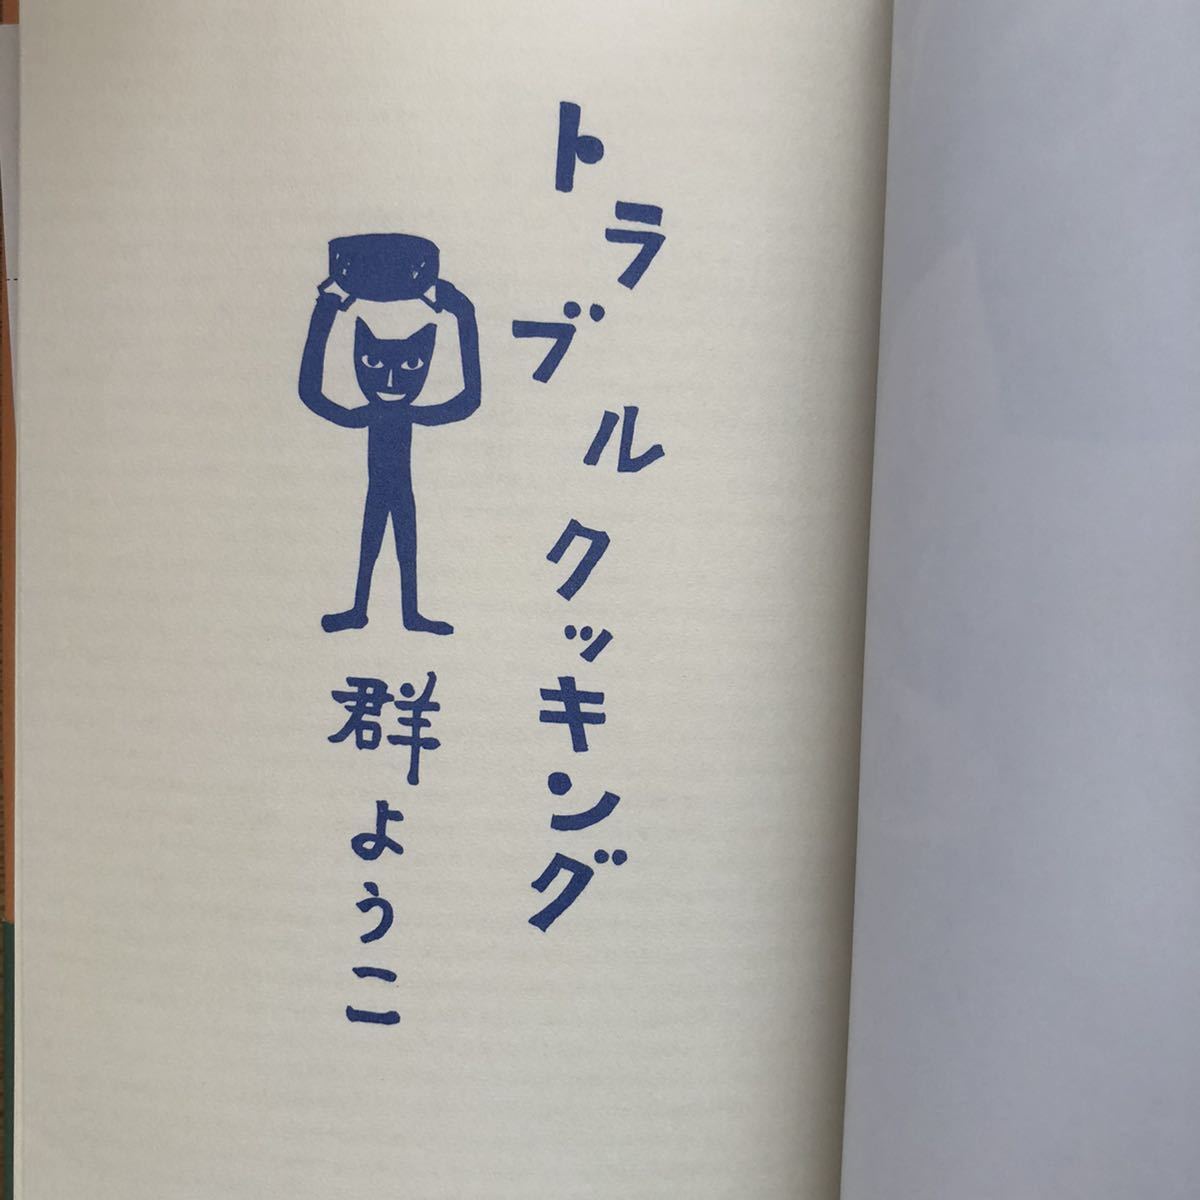 トラブルクッキング
群ようこ